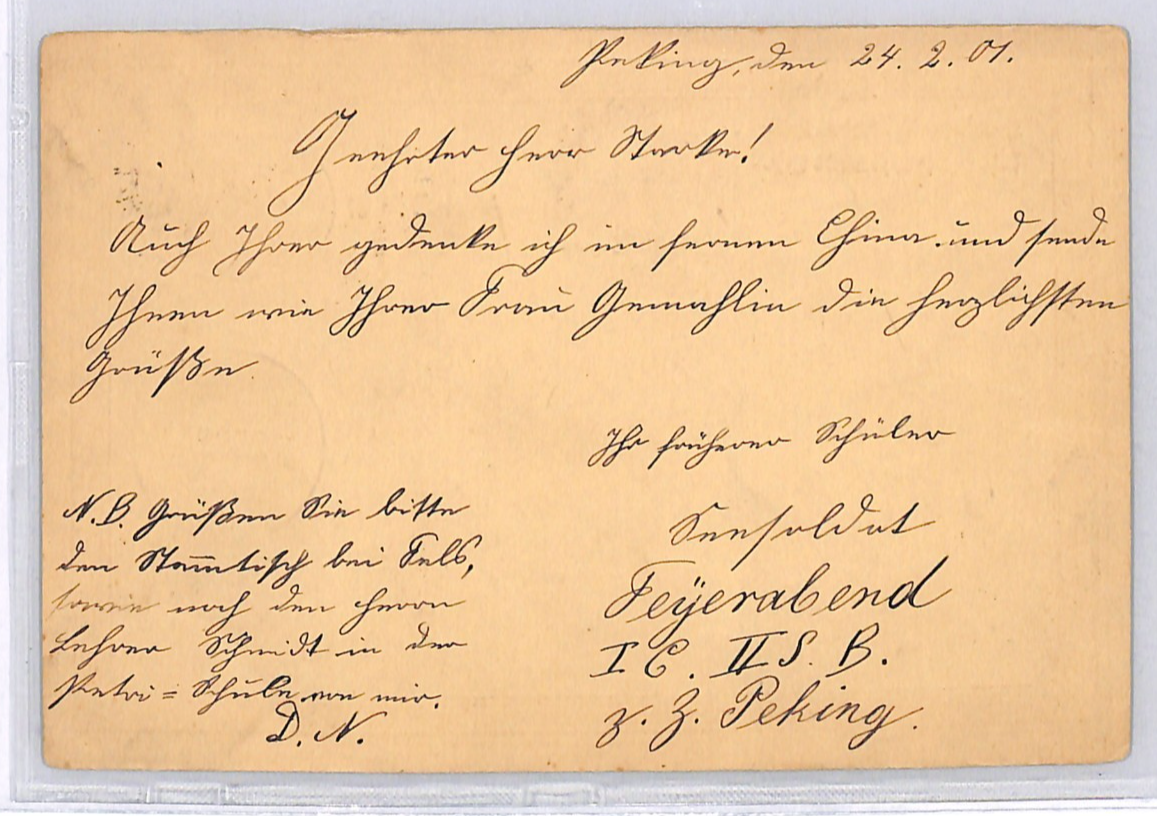 Peking, den 24. 2. 01.
Geehrter Herr Starke!
Auch Ihrer gedenke ich im fernen China und sende
Ihnen wie Ihrer Frau Gemahlin die herzlichsten
Grüße.
Ihr früherer Schüler
Seesoldat
Feÿerabend
I C. II S. B.
z. Z. Peking.
N.B. Grüßen Sie bitte
den Stam̅tisch bei Fels,
sowie noch den Herrn
Lehrer Schmidt in der
Petri=Schule von mir.
D. N.